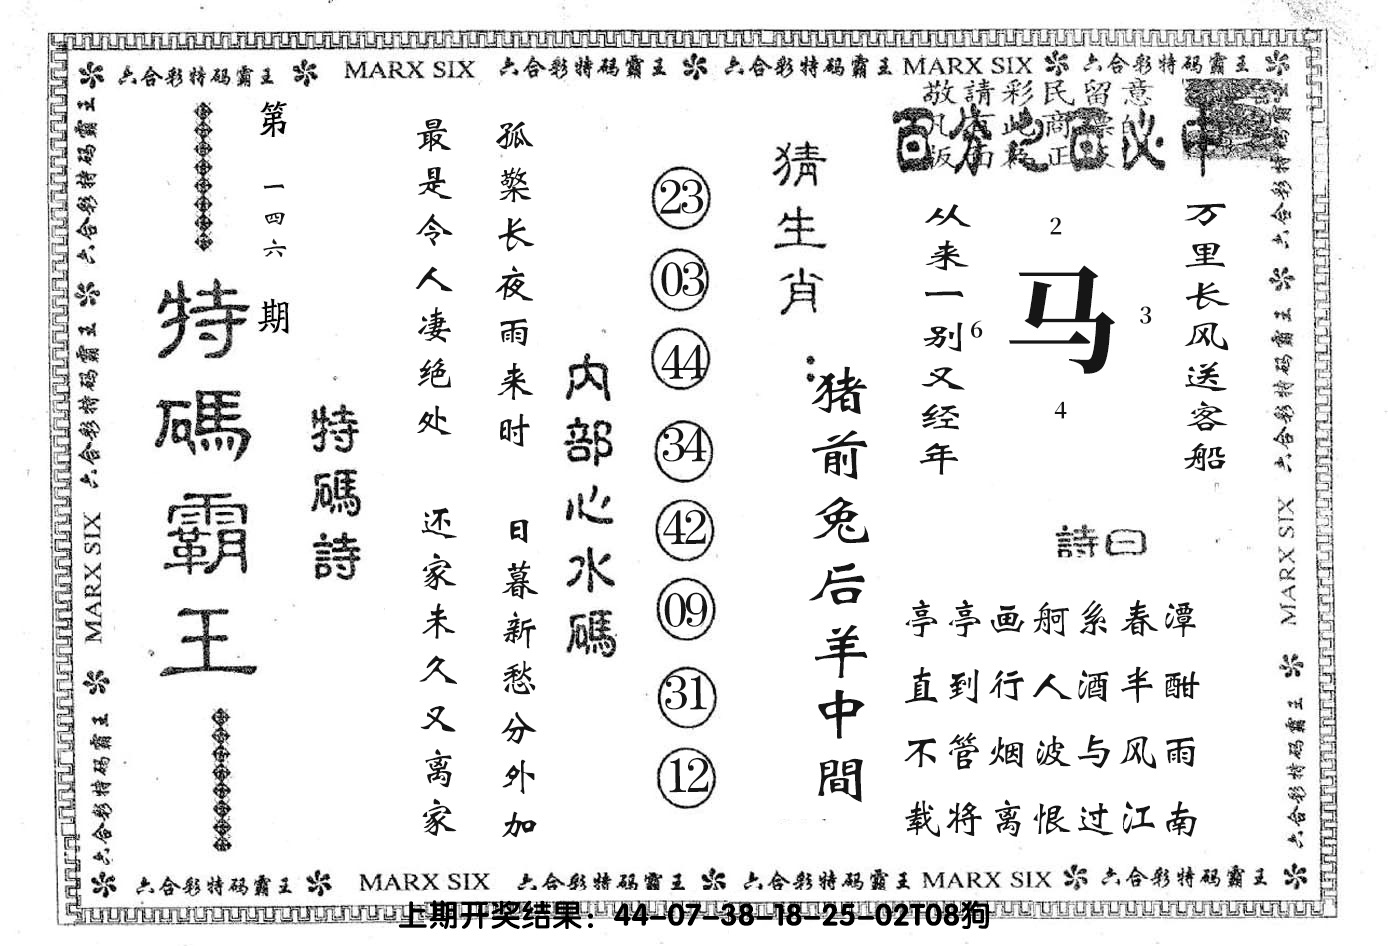 六合彩特码霸王 MARX SIX 六合彩特码霸王 六合彩特码霸王 MARX SIX 六合彩特码霸王
敬請彩民留意
百分之百必中
万里长风送客船
从来一别又经年
2
马
6
3
4
詩曰
亭亭画舸系春潭
直到行人酒半酣
不管烟波与风雨
载将离恨过江南
猜生肖：
猪前兔后羊中間
23
03
44
34
42
09
31
12
内部心水碼
孤檠长夜雨来时 日暮新愁分外加
最是令人凄绝处 还家未久又离家
特碼詩
第一四六期
特碼霸王
六合彩特码霸王 六合彩特码霸王 MARX SIX 六合彩特码霸王
六合彩特码霸王 六合彩特码霸王 MARX SIX 六合彩特码霸王
六合彩特码霸王 MARX SIX 六合彩特码霸王 六合彩特码霸王 MARX SIX 六合彩特码霸王
上期开奖结果：44-07-38-18-25-02T08狗